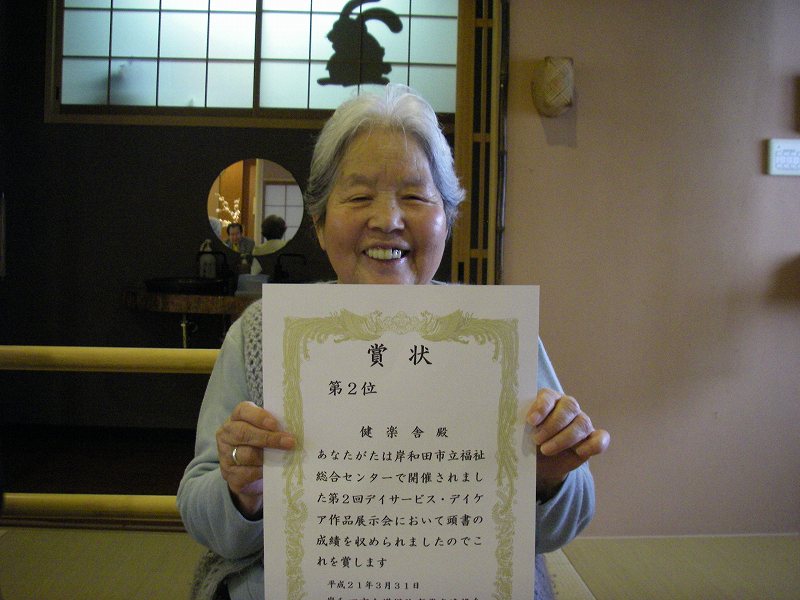 賞状
第２位
健楽舎 殿
あなたがたは岸和田市立福祉
総合センターで開催されまし
た第２回デイサービス・デイケ
ア作品展示会において頭書の
成績を収められましたのでこ
れを賞します
平成２１年３月３１日